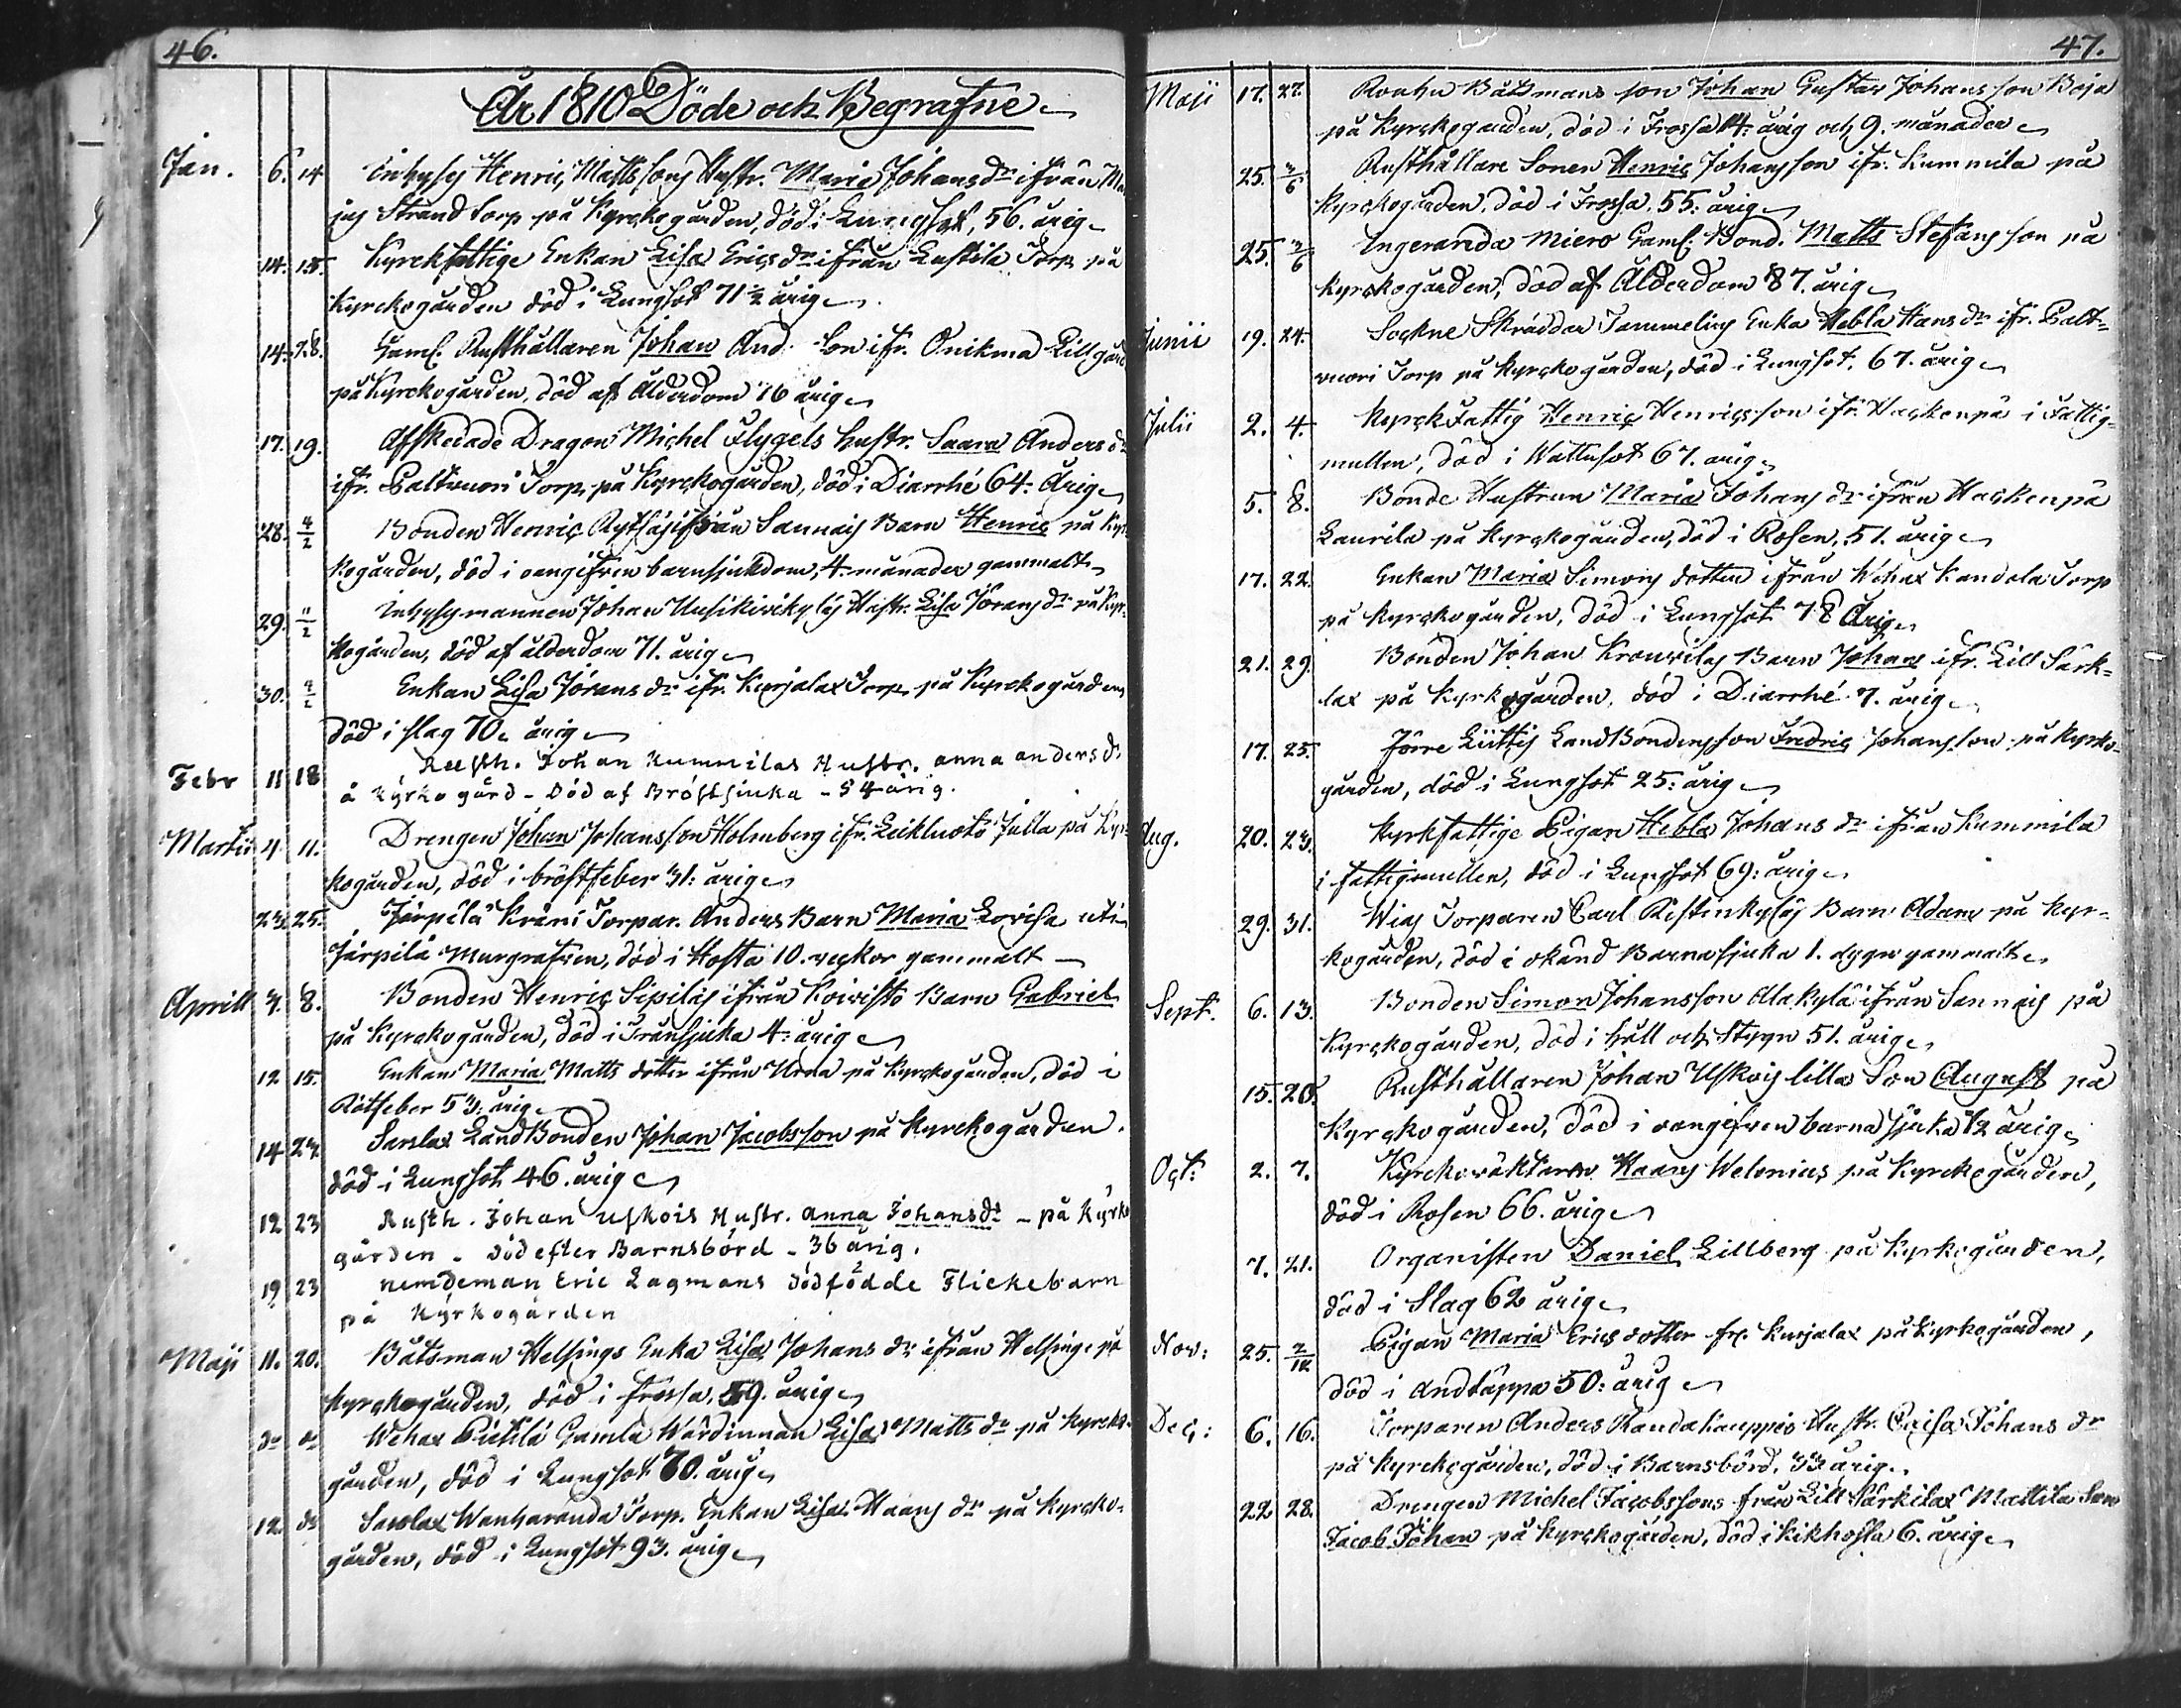 46.
År 1810 Döde och Begrafne
Jan. 6. 14 Inhyses Henric Mattssons Hustr. Maria Johansdr ifrån
Strand Torp på Kyrckogården, död i Lungsot, 56. årig
14. 15. Kyrckfattige Enkan Lisa Ericsdr ifrån Eustila Torp på
Kyrckogården död i Lungsot 71 1/2 årig
14. 28. Gaml. Rusthållaren Johan And. Son ifr. Onikma Lillgård
på Kyrckogården, död af Ålderdom 76 årig
17. 19. Afskedade Dragon Michel Flygels hustr. Saara Anders dr
ifr. Paltvuori Torp, på Kyrckogården, död i Diarrhé 64. Årig
28. 4/2 Bonden Henric från Sannais Barn Henric på Kyr
kogården, död i oangifven barnsjukdom, 4. månader gammalt
29. 11/2 Inhysesmannen Johan Uusikirickyläs Hustr. Lisa Jörans dr på Kyr-
kogården, död af ålderdom 71. årig
30. 4/2 Enkan Lisa Jörans dr ifr. Kurjalax Torp, på Kyrckogården
död i slag 70. årig
Febr 11 18 Rusth. Johan Kummilas Hustr. anna anders dr
å Kyrko gård - död af Bröstsiuka - 54 årig.
Martii 4 11. Drengen Johan Johansson Holmberg ifr. Leikluoto Julla på Kyr-
kogården, död i bröstfeber 31: årig
23. 25. Järpilä Kråni Torpar. Anders Barn Maria Lovisa uti
Järpilä Murgrafven, död i Hosta 10. veckor gammalt
Aprill 3. 8. Bonden Henric Sipiläs ifrån Koivisto Barn Gabriel
på Kyrckogården, död i Transjuka 4: årig
12 15. Enkan Maria Matts dotter ifrån Urda på Kyrckogården, död i
Rötfeber 53: årig
14 23. Sarslax LandBonden Johan Jacobsson på Kyrckogården.
död i Lungsot 46. årig
12 23 Rusth. Johan Uskois Hustr. anna Johansdr - på Kyrko
gården - död efter Barnsbörd - 36 årig.
19 23 nemdeman Eric Lagmans dödfödde Flickebarn
på Kyrkogården
Maji 11. 20. Båtsman Helsings Enka Lisa Johans dr ifrån Helsinge på
Kyrckogården, död i frossa, 59. årig
do do Wehax Pietilä Gamla Wärdinnan Lisa Matts dr på Kyrcko-
gården, död i Lungsot 70. årig
12. do Sarslax Wanharanda Torp. Enkan Lisa Haans dr på Kyrcko-
gården, död i Lungsot 93. årig
47.
Maji 17. 27. Rouhu Båtsmans son Johan Gustav Johansson Boja
på Kyrckogården, död i Frossa 14: årig och 9. månader
25. 3/6 Rusthållare Sonen Henric Johansson ifr. Kummila på
Kyrckogården, död i Frossa, 55: årig
25. 3/6 Ingeranda Miero Gaml. Bond. Matts Stefansson på
Kyrckogården, död af Ålderdom 87. årig
Junii 19. 24. Sockne Skräddar Tammelins Enka Hebla Hans dr ifr. Palt-
vuori Torp på Kyrckogården, död i Lungsot. 67. årig
Julii 2. 4. KyrckFattig Henric Henricsson ifr. Hackenpä i Fattig-
mullen, död i Wattusot 67. årig
5. 8. Bonde Hustrun Maria Johans dr ifrån Hackenpä
Laurila på Kyrckogården, död i Rosen, 51. årig
17. 22. Enkan Maria Simons dotter ifrån Wehax Kandola Torp
på Kyrckogården, död i Lungsot 78 Årig
21. 29. Bonden Johan Krouvilas Barn Johan ifr. Lill Särk-
lax på Kyrkogården. död i Diarrhé 7. årig
17. 25. Jörre Lüttis LandBondensson Fredric Johansson på Kyrko-
gården, död i Lungsot 25: årig
Aug. 20. 23. Kyrkfattige Pigan Hebla Johans dr ifrån Kummila
i fattigmullen, död i Lungsot 69: årig
29. 31. Wias Torparen Carl Ristinkyläs Barn Adam på Kyr-
kogården, död i okänd Barnasjuka 1. dygn gammalt
Sept. 6. 13. Bonden Simon Johansson Alakylä ifrån Sannais på
Kyrckogården, död i håll och Styng 51. årig
15. 20. Rusthållaren Johan Uskois lilla Son August på
Kyrckogården, död i oangifven barnasjuka 1/2 årig
Oct: 2. 7. Kyrckoväktaren Haans Welenius på Kyrckogården,
död i Rosen 66. årig
7. 21. Organisten Daniel Lillberg på Kyrkogården,
död i Slag 62 årig
Nov: 25. 2/12 Pigan Maria Erics dotter fr. Kurjalax på Kyrkogården,
död i Andtäppa 50: årig
Dec: 6. 16. Torparen Anders Randahauppis Hustr. Caisa Johans dr
på Kyrckogården, död i Barnsbörd, 33 årig.
22 28. Drengen Michel Jacobssons från Lill Särkilax Mattila Son
Jacob Johan på Kyrckogården, död i Kikhosta 6. årig